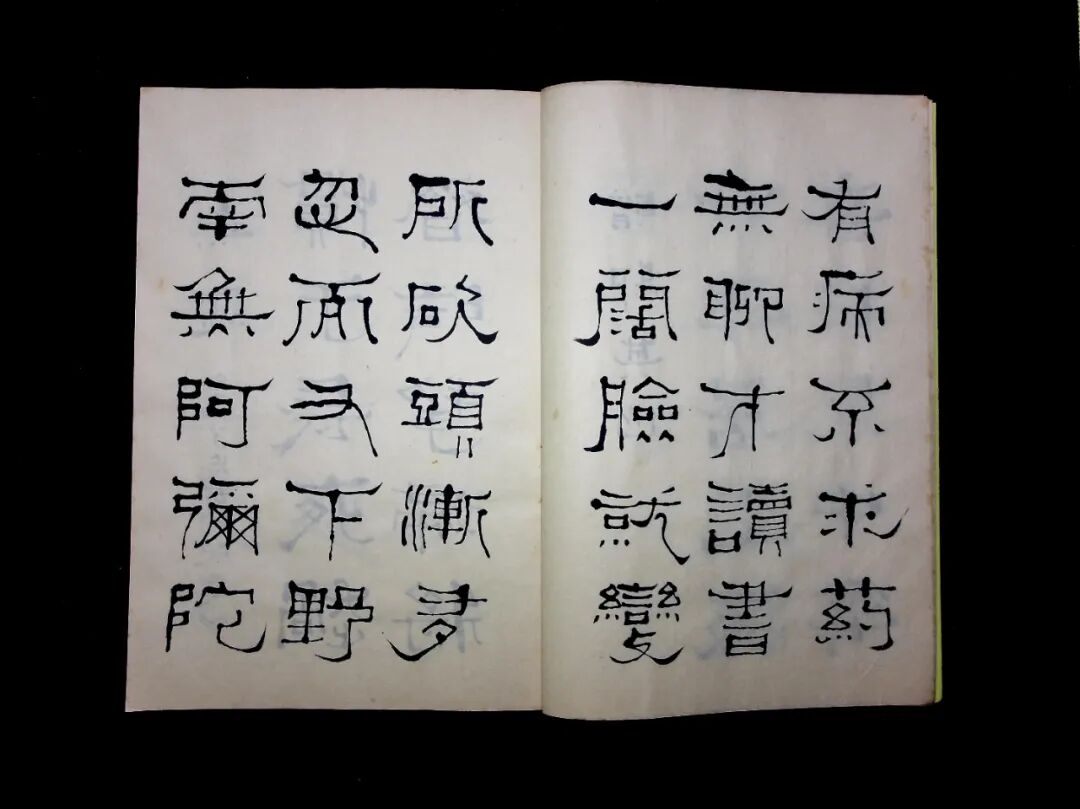 有病不求葯
無聊才讀書
一闊臉就變
所砍頭漸多
忽而又下野
南無阿彌陀